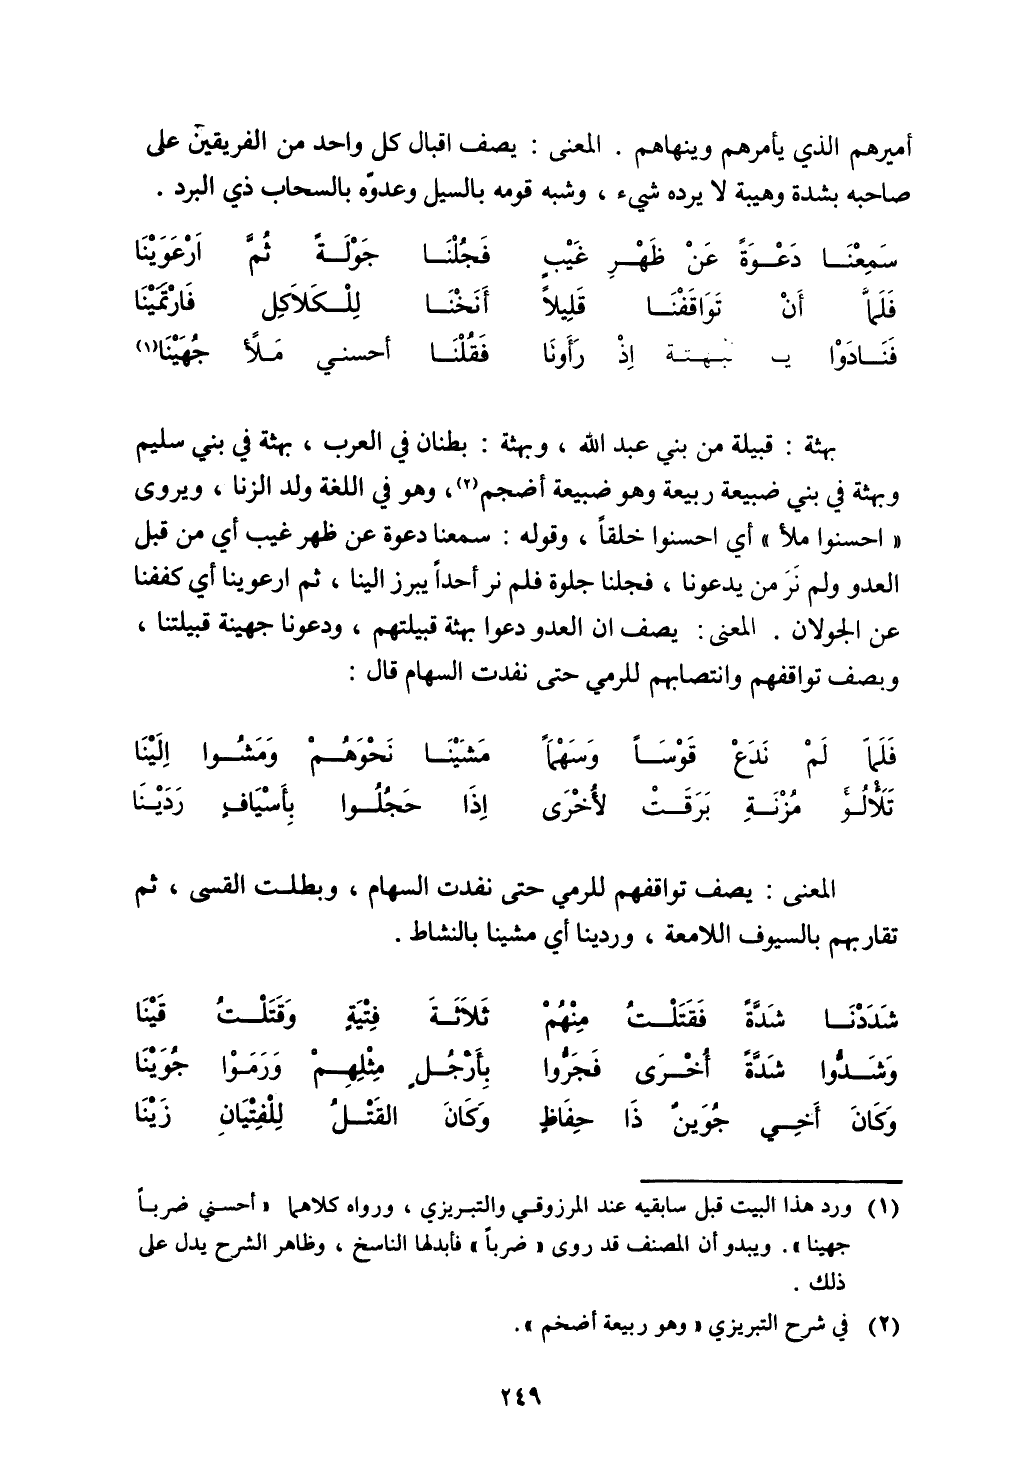 أميرهم الذي يأمرهم وينهاهم . المعنى : يصف اقبال كل واحد من الفريقين على
صاحبه بشدة وهيبة لا يرده شيء ، وشبه قومه بالسيل وعدوّه بالسحاب ذي البرد .
سَمِعْنَا دَعْوَةً عَنْ ظَهْرِ غَيْبٍ فَجُلْنَا جَوْلَةً ثُمَّ ارْعَوَيْنَا
فَلَمَّا أَنْ تَوَاقَفْنَا قَلِيلاً أَنَخْنَا لِلْكَلاَكِلِ فَارْتَمَيْنَا
فَنَادَوْا يـ بُهْتَةَ إِذْ رَأَوْنَا فَقُلْنَا أحسني مَلَأً جُهَيْنَا(١)
بهثة : قبيلة من بني عبد الله ، وبهثة : بطنان في العرب ، بهثة في بني سليم
وبهثة في بني ضبيعة ربيعة وهو ضبيعة أضجم(٢)، وهو في اللغة ولد الزنا ، ويروى
« احسنوا ملأ » أي احسنوا خلقاً ، وقوله : سمعنا دعوة عن ظهر غيب أي من قبل
العدو ولم نَرَ من يدعونا ، فجلنا جلوة فلم نر أحداً يبرز الينا ، ثم ارعوينا أي كففنا
عن الجولان . المعنى : يصف ان العدو دعوا بهثة قبيلتهم ، ودعونا جهينة قبيلتنا ،
وبصف تواقفهم وانتصابهم للرمي حتى نفدت السهام قال :
فَلَمّا لَمْ نَدَعْ قَوْسَاً وَسَهْمَاً مَشَيْنَا نَحْوَهُمْ وَمَشُوا اِلَيْنَا
تَلَأْلُؤَ مُزْنَةٍ بَرَقَتْ لأُخْرَى إِذَا حَجُلُوا بِأَسْيَافٍ رَدَيْنَا
المعنى : يصف تواقفهم للرمي حتى نفدت السهام ، وبطلت القسى ، ثم
تقاربهم بالسيوف اللامعة ، وردينا أي مشينا بالنشاط .
شَدَدْنَا شَدَّةً فَقَتَلْتُ مِنْهُمْ ثَلاَثَةَ فِتْيَةٍ وَقَتَلْتُ قَيْنَا
وَشَدُّوا شَدَّةً أُخْرَى فَجَرُّوا بِأَرْجُلِ مِثْلِهِمْ وَرَمَوْا جُوَيْنَا
وَكَانَ أَخِي جُوَينٌ ذَا حِفَاظٍ وَكَانَ القَتْلُ لِلْفِتْيَانِ زَيْنَا
(١) ورد هذا البيت قبل سابقيه عند المرزوقي والتبريزي ، ورواه كلاهما « أحسني ضرباً
جهينا » . ويبدو أن المصنف قد روى « ضرباً » فأبدلها الناسخ ، وظاهر الشرح يدل على
ذلك .
(٢) في شرح التبريزي « وهو ربيعة أضخم » .
٢٤٩